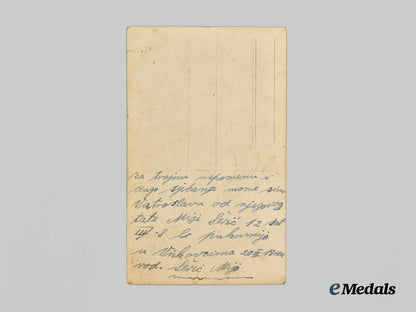 za trajnu uspomenu i
dugo sjećanje mome sinu
Vatroslavu od njegovog
tate Mije Sečić 12 sat
8 le pukovnije
u Vinkovcima 20
vod. Sečić Mijo
eMedals